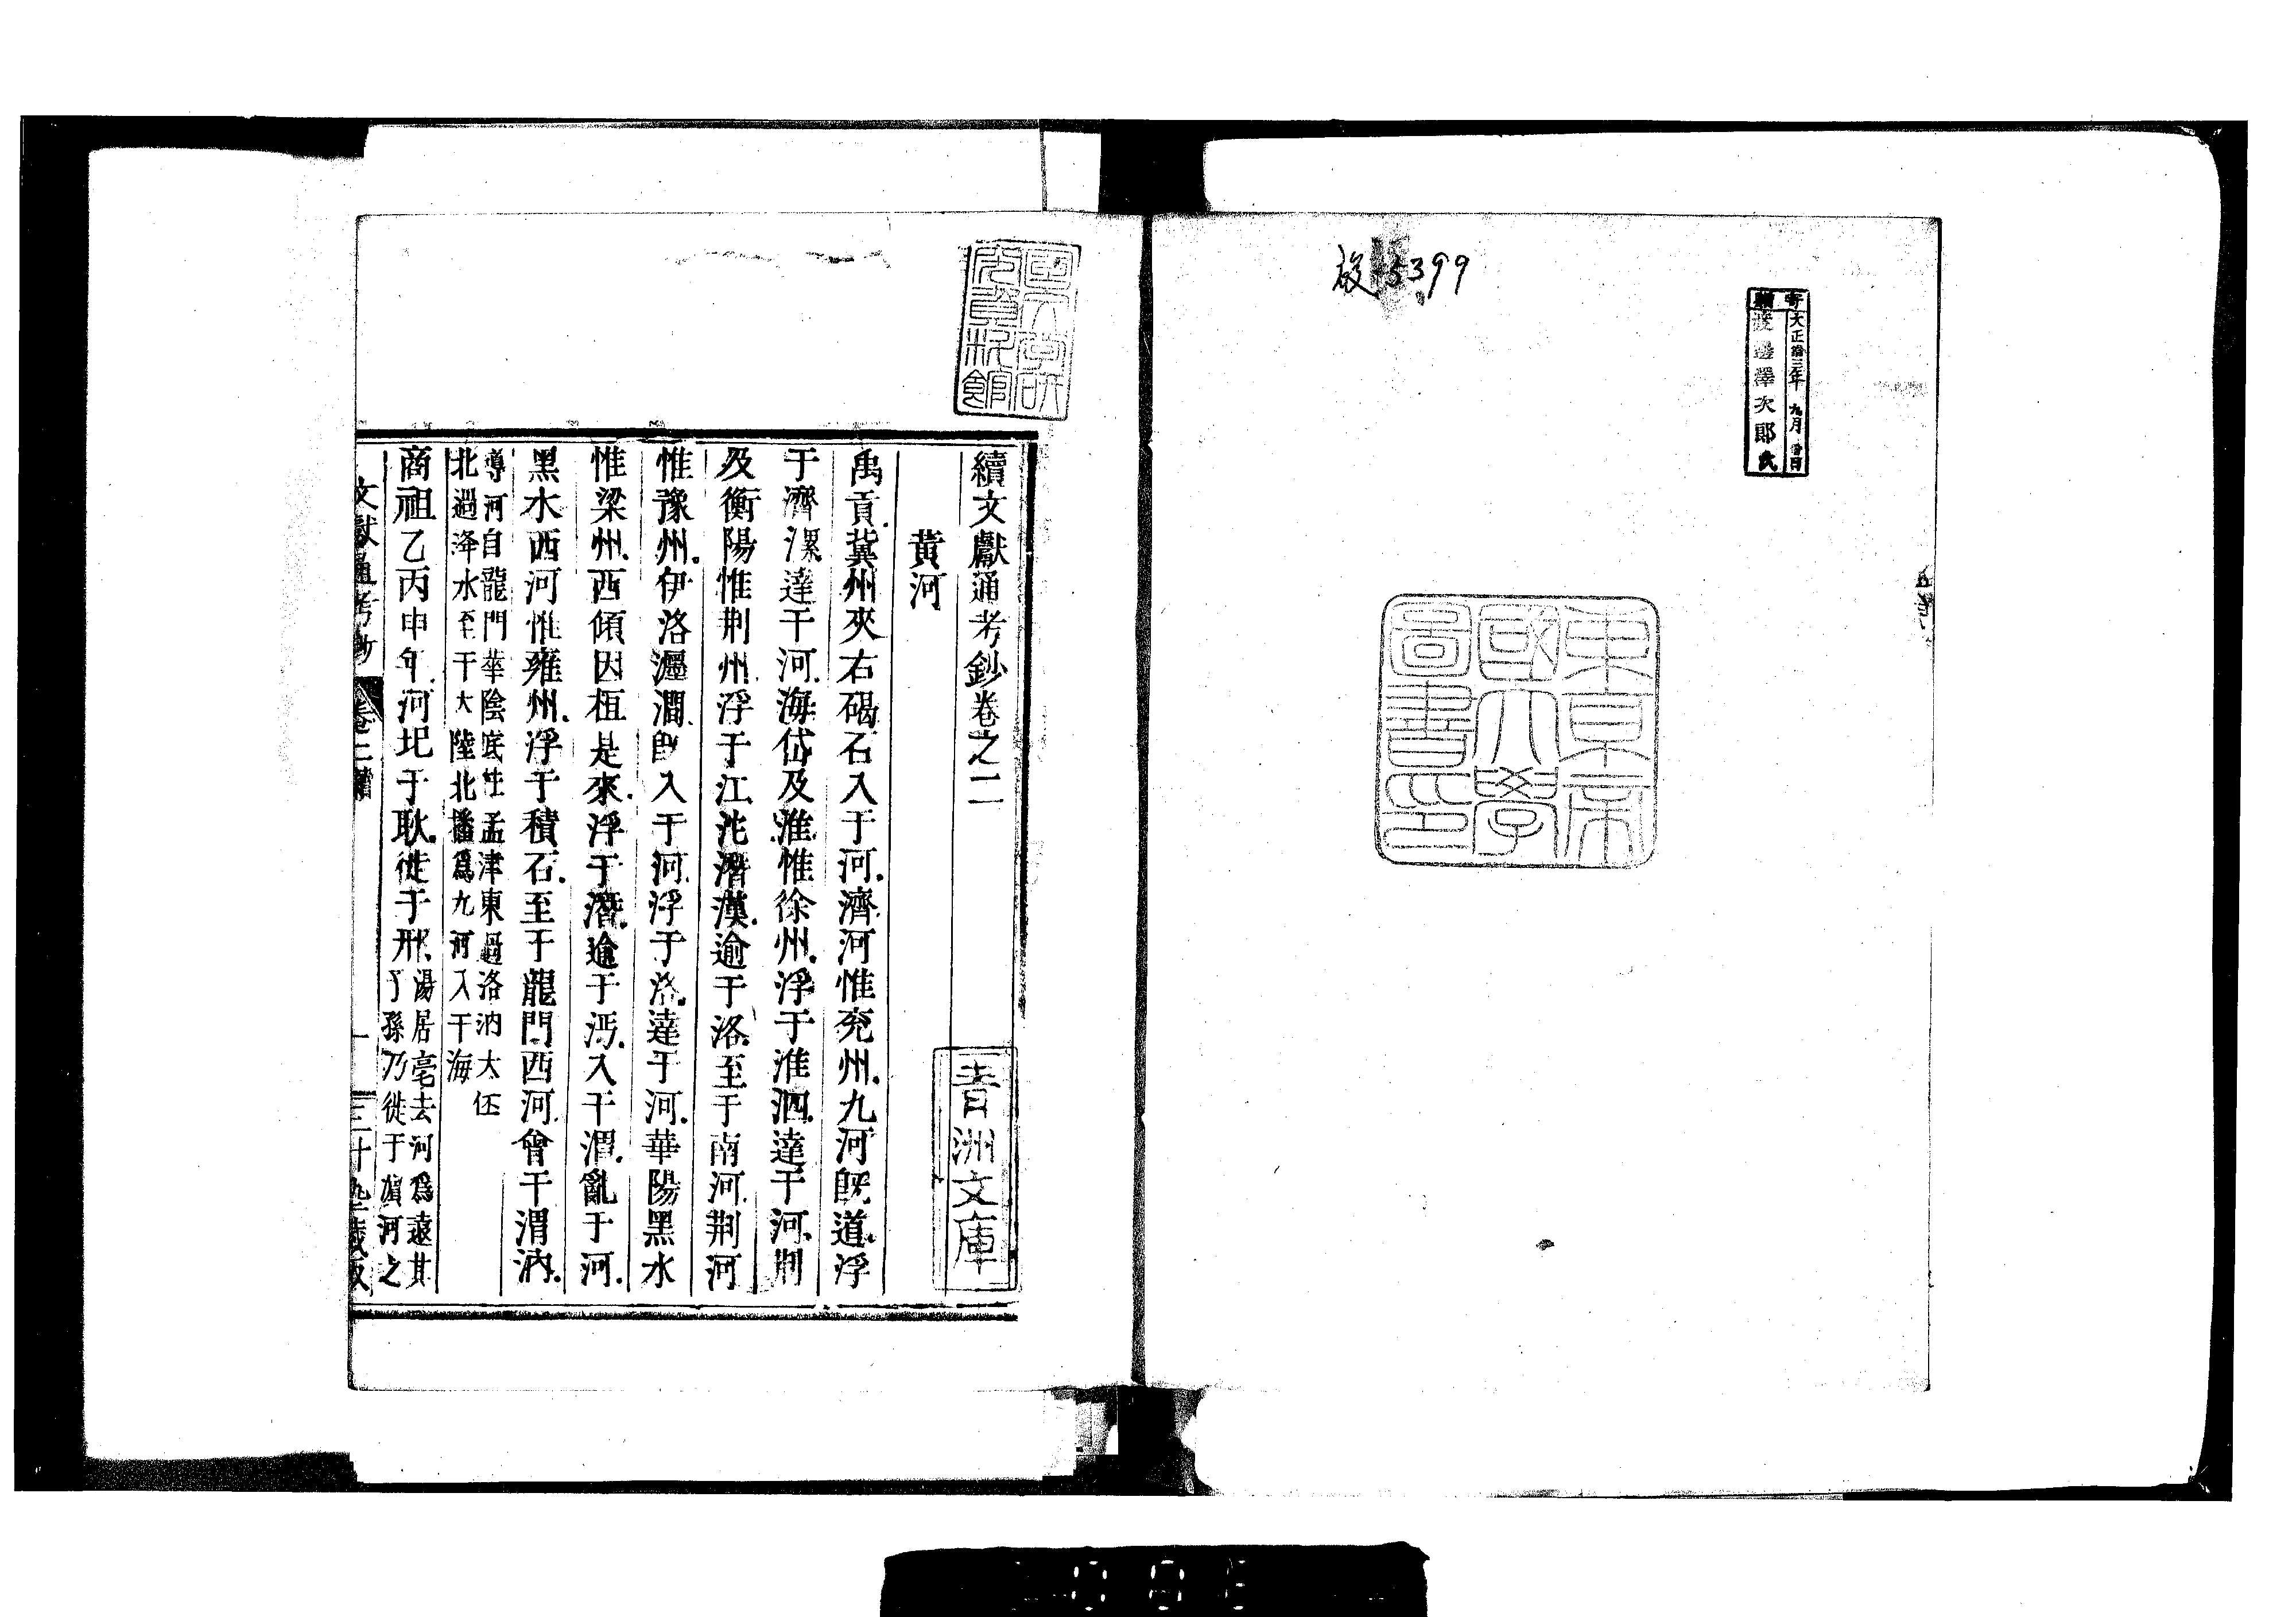 寄贈
大正拾三年 九月 日
渡邊澤次郎氏
5399
東京帝
國大學
圖書印
國文學研
究資料館
青洲文庫
續文獻通考鈔卷之二
黃河
禹貢冀州夾右碣石入于河濟河惟兗州九河旣道浮
于濟漯達于河海岱及淮惟徐州浮于淮泗達于河荆
及衡陽惟荆州浮于江沱濳漢逾于洛至于南河荆河
惟豫州伊洛瀍澗旣入于河浮于洛達于河華陽黑水
惟梁州西傾因桓是來浮于潛逾于沔入于渭亂于河
黑水西河惟雍州浮于積石至于龍門西河會于渭汭
導河自龍門華陰底柱孟津東過洛汭大伾
北過洚水至于大陸北播爲九河入于海
商祖乙丙申年河圮于耿徙于邢湯居亳去河爲遠其
子孫乃徙于濵河之
文獻通考鈔 卷二 一 三十 藏版